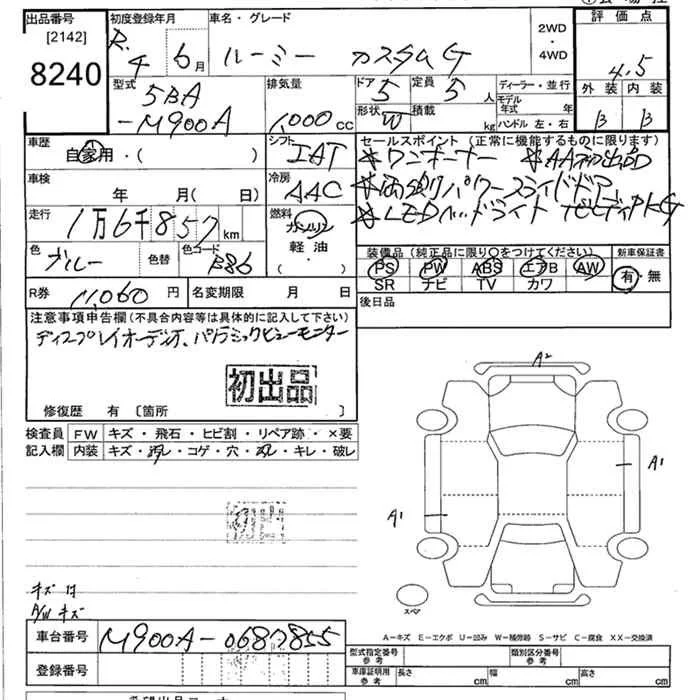 出品番号
[2142]
8240
初度登録年月
R.4 6月
車名・グレード
ルーミー カスタムG
2WD
・
4WD
評価点
4.5
外装 内装
B B
型式
5BA
-M900A
排気量
1,000cc
ドア
5
定員
5人
形状
W
積載
kg
ディーラー・並行
モデル年式 年
ハンドル 左・右
車歴
自家用・( )
シフト
IAT
セールスポイント(正常に機能するものに限ります)
*ワンオーナー *AA初出品
*両側パワースライドドア
*LEDヘッドライト
車検
年 月( 日)
冷房
AAC
走行
1万6千857km
燃料
ガソリン
軽油
・( )
色
ブルー
色替
色コード
B86
装備品(純正品に限り○をつけてください)
PS PW ABS エアB AW
SR ナビ TV カワ
新車保証書
有・無
R券
11,060円
名変期限 月 日
後日品
注意事項申告欄(不具合内容等は具体的に記入して下さい)
ディスプレイオーディオ、パノラミックビューモニター
初出品
修復歴 有〔箇所 〕
検査員
記入欄
FW キズ・飛石・ヒビ割・リペア跡・×要
内装 キズ・汚レ・コゲ・穴・スレ・キレ・破レ
A2
A1
A1
スペア
キズ け
A/W キズ
A−キズ E−エクボ U−凹み W−補修跡 S−サビ C−腐食 XX−交換済
車台番号
M900A-0687855
登録番号
型式指定番号
参考
類別区分番号
参考
車庫証明用
参考
長さ cm
幅 cm
高さ cm